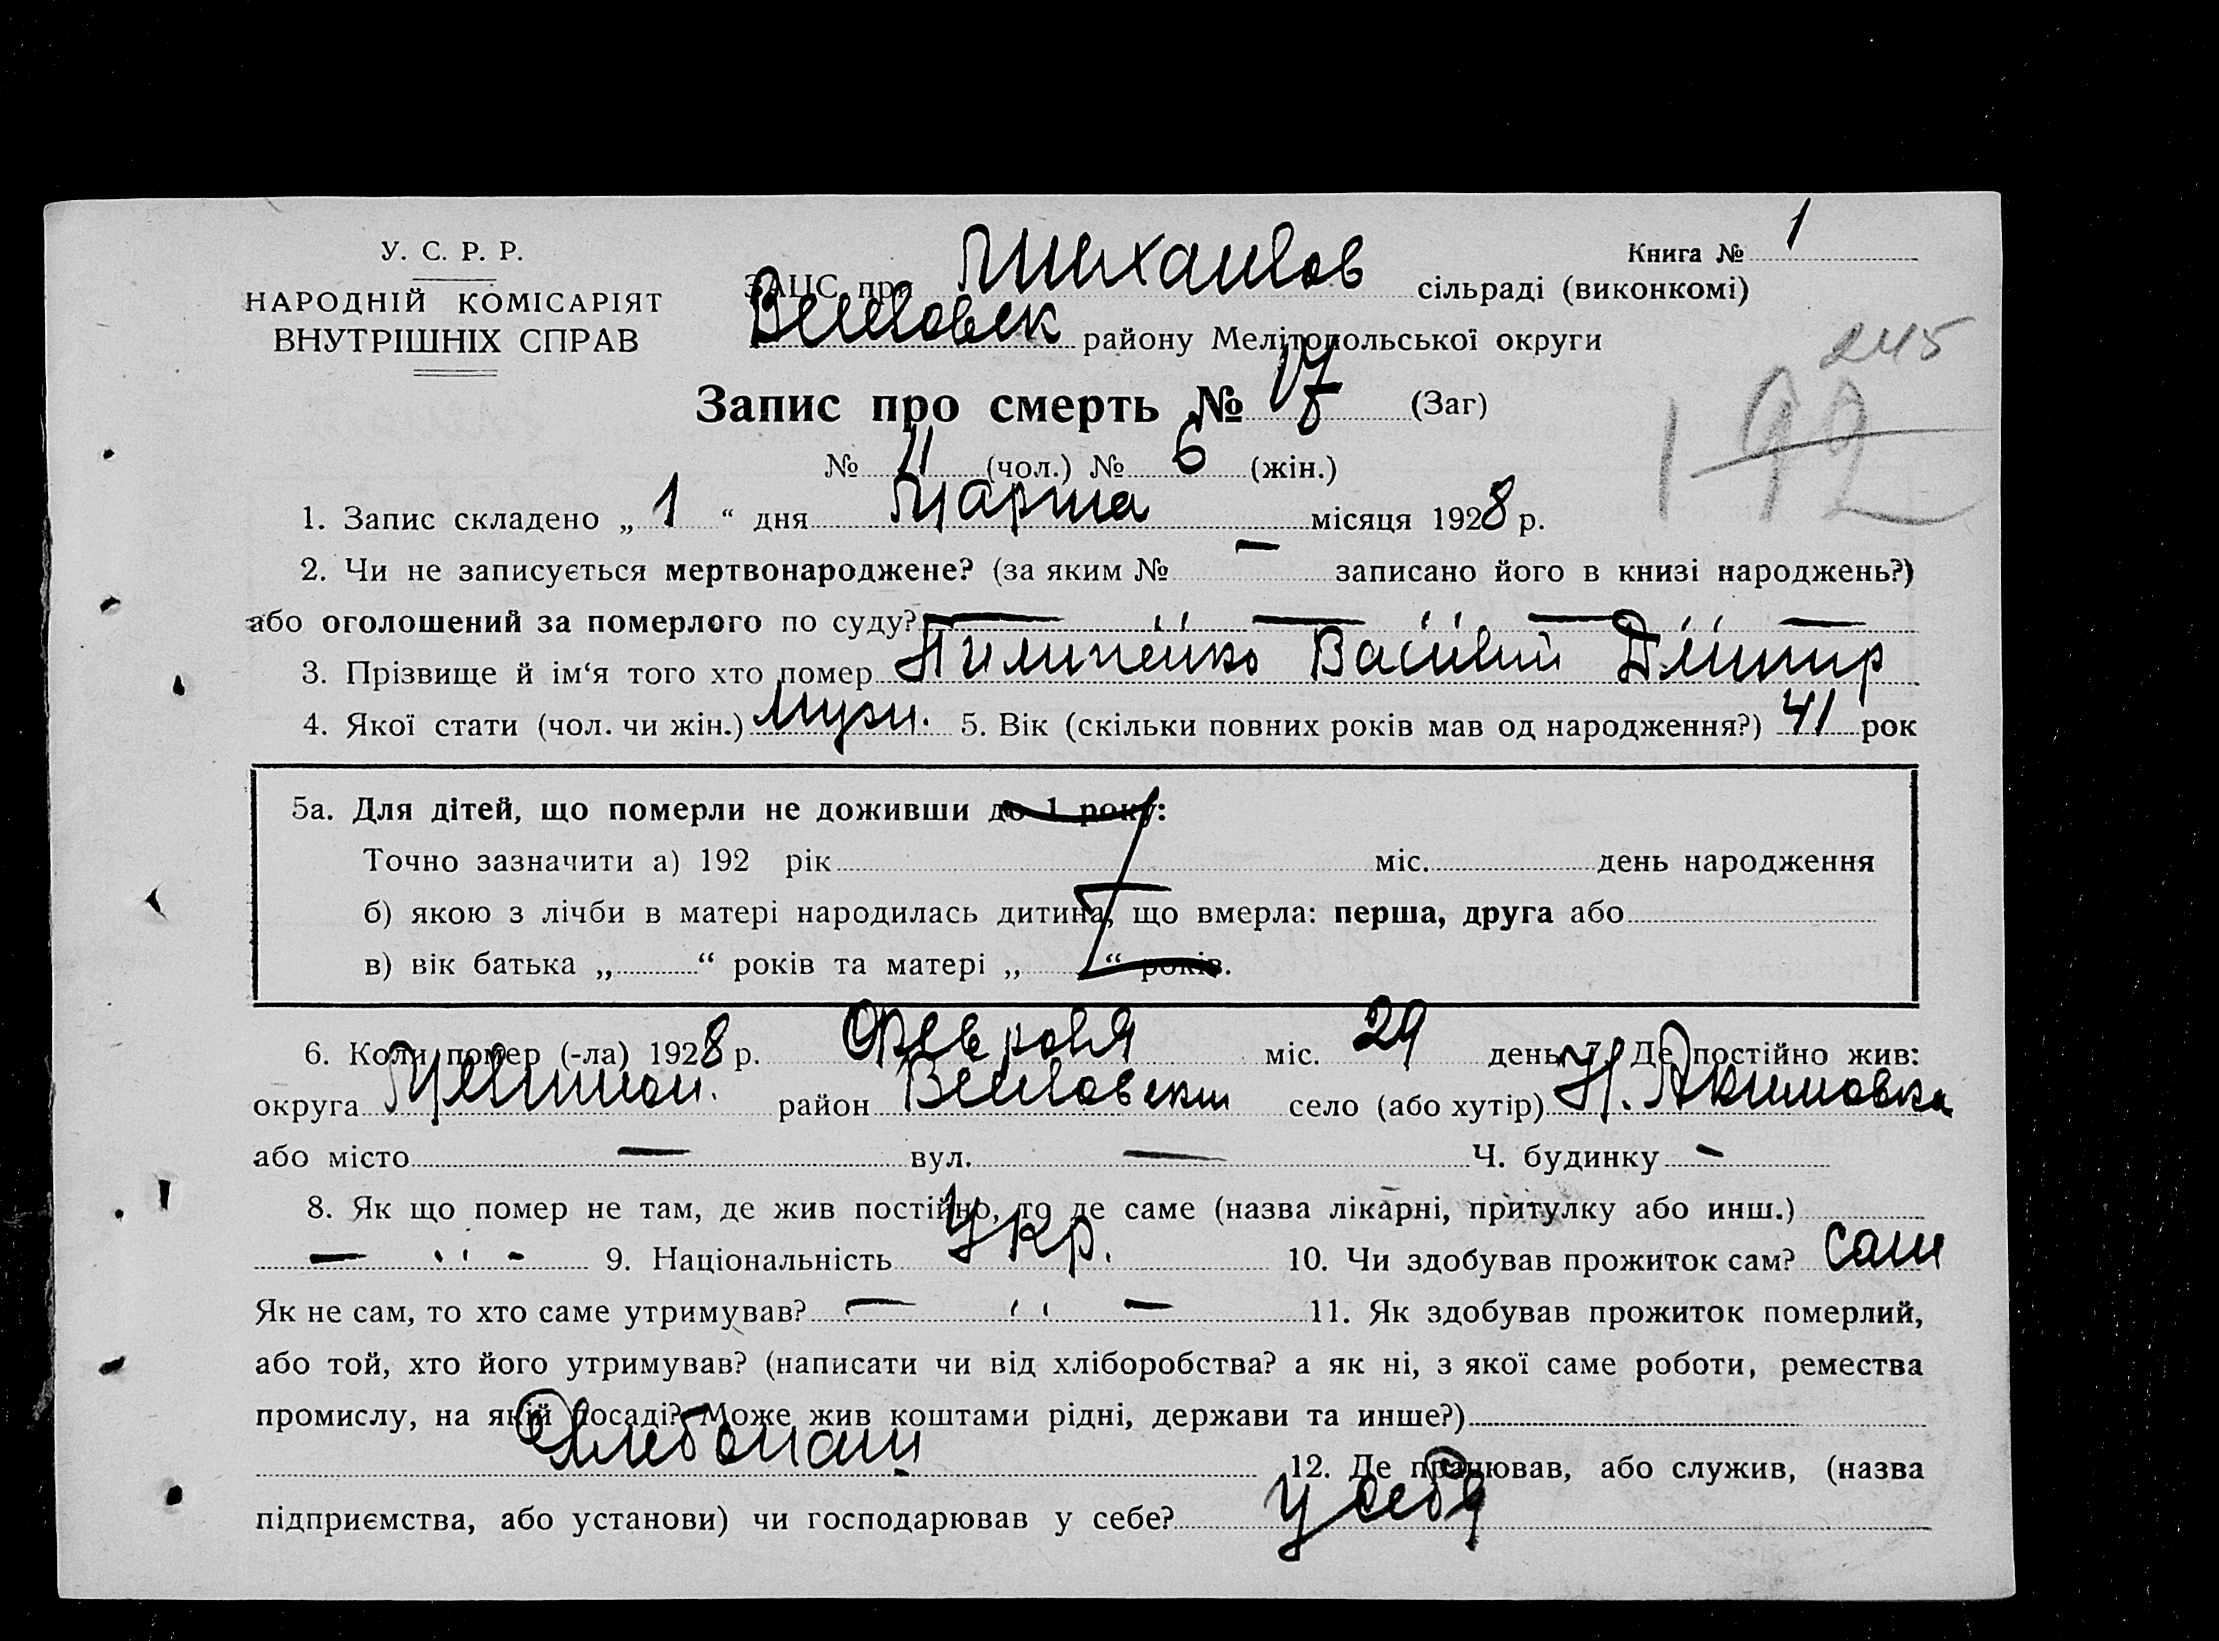 У. С. Р. Р.
НАРОДНІЙ КОМІСАРІЯТ
ВНУТРІШНІХ СПРАВ
Книга № 1
ЗАЦС при Михайлов сільраді (виконкомі)
Веселовск району Мелітопольської округи
245
192
Запис про смерть № 17 (Заг)
№ 11 (чол.) № 6 (жін.)
1. Запис складено „ 1 “ дня Марта місяця 1928 р.
2. Чи не записується мертвонароджене? (за яким № — записано його в книзі народжень?)
або оголошений за померлого по суду? — " — " — " —
3. Прізвище й ім‘я того хто помер Пилипенко Василий Дмитр
4. Якої стати (чол. чи жін.) муж. 5. Вік (скільки повних років мав од народження?) 41 рок
5а. Для дітей, що померли не доживши до 1 року:
Точно зазначити а) 192 рік міс. день народження
б) якою з лічби в матері народилась дитина, що вмерла: перша, друга або
в) вік батька „ “ років та матері „ “ років.
6. Коли помер (-ла) 1928 р. Февроля міс. 29 день 7. Де постійно жив:
округа Мелитоп. район Веселовский село (або хутір) Н. Акимовка
або місто — вул. — Ч. будинку -
8. Як що помер не там, де жив постійно, то де саме (назва лікарні, притулку або инш.)
— " - 9. Національність Укр. 10. Чи здобував прожиток сам? сам
Як не сам, то хто саме утримував? — " — 11. Як здобував прожиток померлий,
або той, хто його утримував? (написати чи від хліборобства? а як ні, з якої саме роботи, ремества
промислу, на якій посаді? Може жив коштами рідні, держави та инше?)
Хлебопаш 12. Де працював, або служив, (назва
підприємства, або установи) чи господарював у себе? у себя